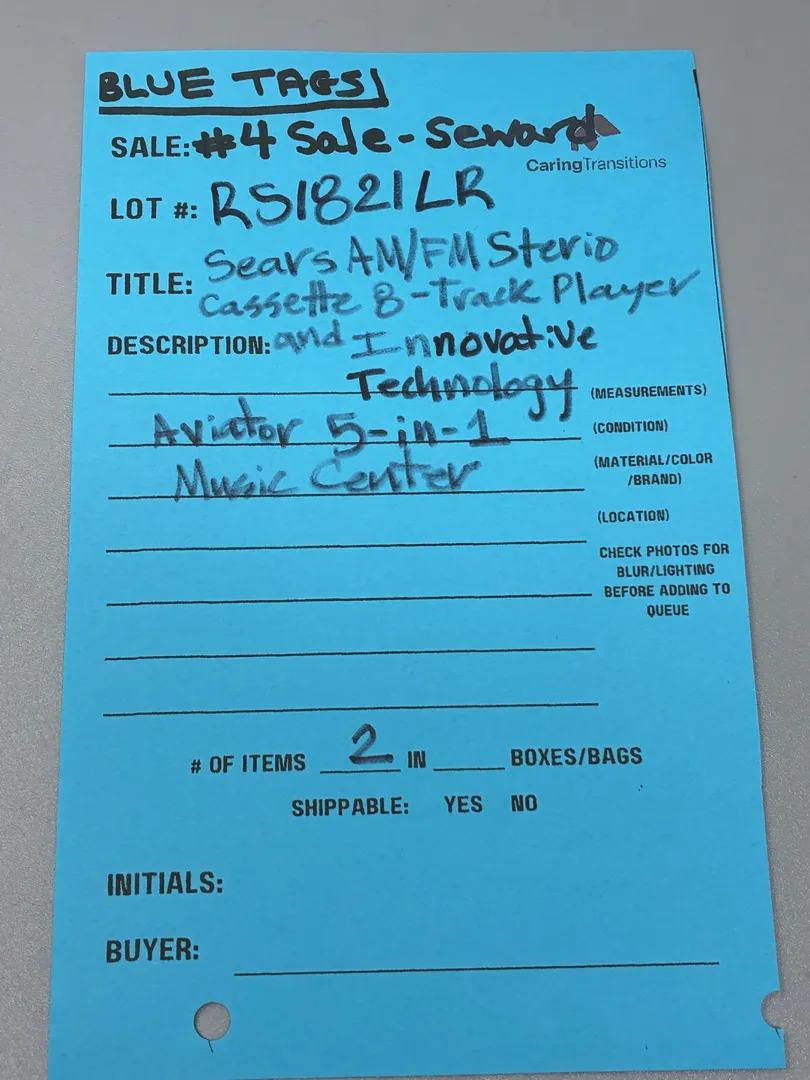 BLUE TAGS
SALE: #4 Sale - Seward
CaringTransitions
LOT #: RS1821LR
TITLE: Sears AM/FM Sterio
Cassette 8-Track Player
DESCRIPTION: and Innovative
Technology
(MEASUREMENTS)
Aviator 5-in-1
(CONDITION)
Music Center
(MATERIAL/COLOR
/BRAND)
(LOCATION)
CHECK PHOTOS FOR
BLUR/LIGHTING
BEFORE ADDING TO
QUEUE
# OF ITEMS 2 IN BOXES/BAGS
SHIPPABLE: YES NO
INITIALS:
BUYER: